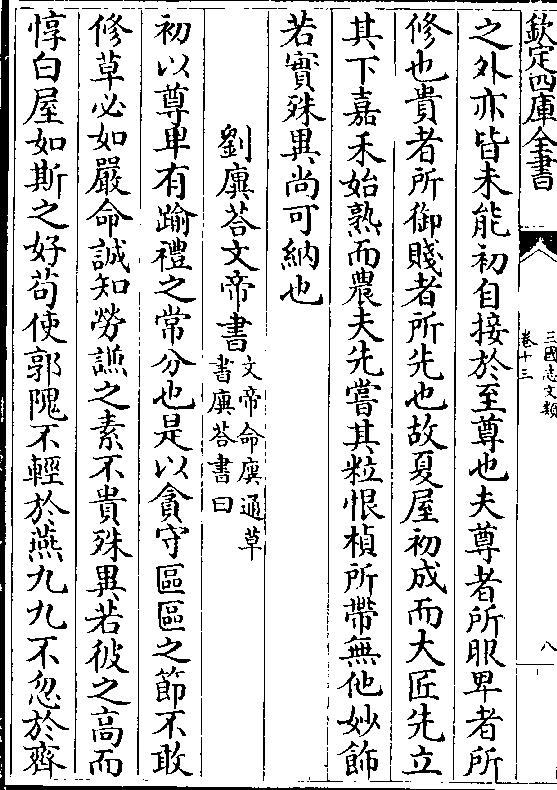 欽定四庫全書
三國志文類
卷十三
八
之外亦皆未能初自接於至尊也夫尊者所服卑者所
修也貴者所御賤者所先也故夏屋初成而大匠先立
其下嘉禾始熟而農夫先嘗其粒恨楨所帶無他妙飾
若實殊異尚可納也
劉廙荅文帝書
文帝命廙通草
書廙荅書曰
初以尊卑有踰禮之常分也是以貪守區區之節不敢
修草必如嚴命誠知勞謙之素不貴殊異若彼之高而
惇白屋如斯之好苟使郭隗不輕於燕九九不忽於齊